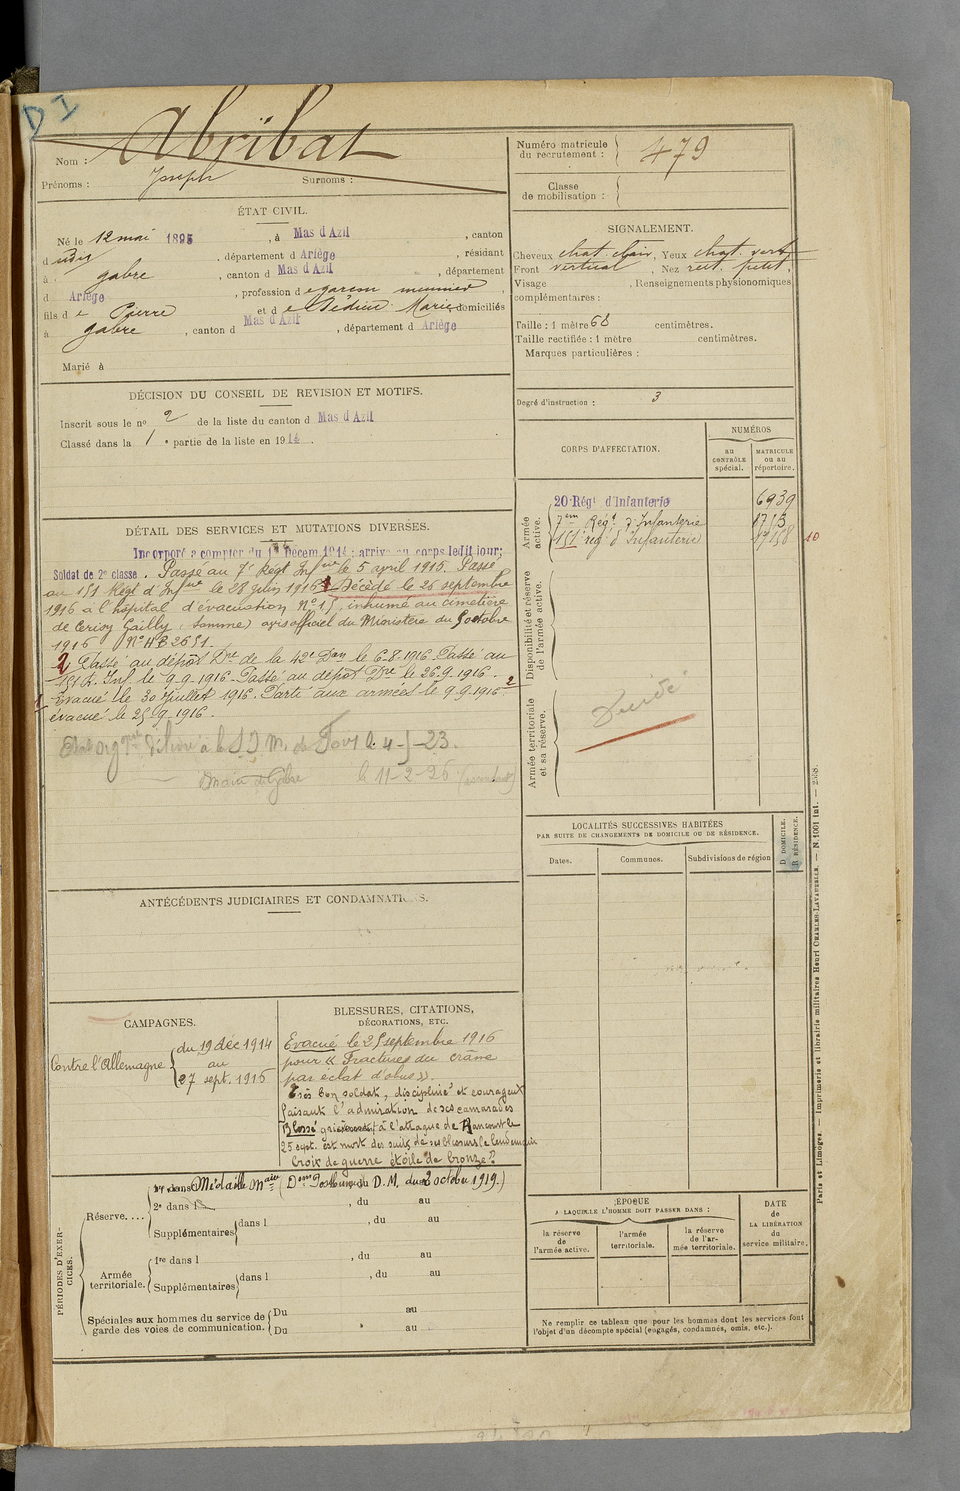 D I
Nom : Abribat
Prénoms : Joseph Surnoms :
Numéro matricule
du recrutement : 479
Classe
de mobilisation :
ÉTAT CIVIL.
Né le 12 mai 1895, à Mas d'Azil, canton
d udit, département d Ariège, résidant
à Gabre, canton d Mas d'Azil, département
d Ariège, profession de garçon meunier,
fils d e Pierre et d e Dédieu Marie, domiciliés
à Gabre, canton d Mas d'Azil, département d Ariège
Marié à
SIGNALEMENT.
Cheveux chat. clair, Yeux chat. vert
Front vertical, Nez rect. petit.
Visage , Renseignements physionomiques
complémentaires :
Taille : 1 mètre 68 centimètres.
Taille rectifiée : 1 mètre centimètres.
Marques particulières :
Degré d'instruction : 3
DÉCISION DU CONSEIL DE REVISION ET MOTIFS.
Inscrit sous le no 2 de la liste du canton d Mas d'Azil
Classé dans la 1e partie de la liste en 1914.
CORPS D'AFFECTATION.
NUMÉROS
au
CONTRÔLE
spécial.
MATRICULE
ou au
répertoire.
Armée
active.
20e Régt d'Infanterie 6939
7em Régt d'Infanterie
151 rég d'Infanterie
10
Disponibilité et réserve
de l'armée active.
Armée territoriale
et sa réserve.
Décédé
DÉTAIL DES SERVICES ET MUTATIONS DIVERSES.
Incorporé à compter du Décem. 1914 ; arrivé au corps ledit jour;
Soldat de 2e classe. Passé au 7e Régt Infrie le 5 avril 1915. Passé
au 151 Régt d'Infrie le 28 juin 1916 1 Décédé le 26 septembre
1916 à l'hôpital d'évacuation No 15, inhumé au cimetière
de Cerisy Gailly (Somme) avis officiel du Ministère du 9 octobre
1916 No HB 2651
2 Passé au dépôt Dre de la 42e Don le 6-8-1916. Passé au
151 R. Inf. le 9-9-1916. Passé au dépôt Dre le 26-9-1916.
1 Evacué le 30 juillet 1916. Parti aux armées le 9-9-1916 2
évacué le 25-9-1916.
délivré à la de Foix le 4-5-23.
Maire de Gabre le 11-2-26
ANTÉCÉDENTS JUDICIAIRES ET CONDAMNATIONS.
LOCALITÉS SUCCESSIVES HABITÉES
PAR SUITE DE CHANGEMENTS DE DOMICILE OU DE RÉSIDENCE.
Dates.
Communes.
Subdivisions de région
D DOMICILE.
R RÉSIDENCE.
CAMPAGNES.
Contre l'Allemagne
du 19 déc 1914
au
27 sept. 1916
BLESSURES, CITATIONS,
DÉCORATIONS, ETC.
Evacué le 25 septembre 1916
pour « Fractures du crâne
par éclat d'obus ».
Très bon soldat, discipliné et courageux
faisant l'admiration de ses camarades
Blessé grièvement à l'attaque de Rancourt le
25 sept. est mort des suites de ses blessures le lendemain
Croix de guerre étoile de bronze
PÉRIODES D'EXERCICES.
Réserve....
1re dans Médaille Mre (Dem Posthume du D. M. du 2 octobre 1919.)
2e dans l , du au
Supplémentaires dans l , du au
Armée
territoriale.
1re dans l , du au
Supplémentaires dans l , du au
Spéciales aux hommes du service de
garde des voies de communication.
Du au
Du au
ÉPOQUE
A LAQUELLE L'HOMME DOIT PASSER DANS :
la réserve
de
l'armée active.
l'armée
territoriale.
la réserve
de l'armée territoriale.
DATE
de
LA LIBÉRATION
du
service militaire.
Ne remplir ce tableau que pour les hommes dont les services font
l'objet d'un décompte spécial (engagés, condamnés, omis, etc.).
Paris et Limoges. — Imprimerie et librairie militaires Henri CHARLES-LAVAUZELLE. — N. 1001 int. — 2558.